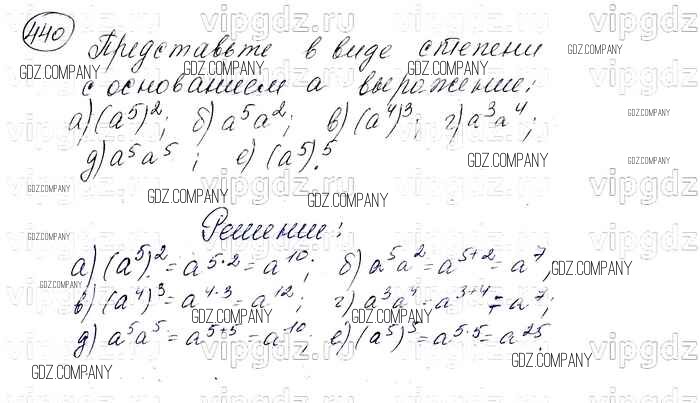 440
Представьте в виде степени
с основанием а выражение:
а) (a⁵)²; б) a⁵a²; в) (a⁴)³; г) a³a⁴;
д) a⁵a⁵; е) (a⁵)⁵.
Решение:
а) (a⁵)² = a⁵·² = a¹⁰; б) a⁵a² = a⁵⁺² = a⁷;
в) (a⁴)³ = a⁴·³ = a¹²; г) a³a⁴ = a³⁺⁴ = a⁷;
д) a⁵a⁵ = a⁵⁺⁵ = a¹⁰; е) (a⁵)⁵ = a⁵·⁵ = a²⁵.
vipgdz.ru
GDZ.COMPANY